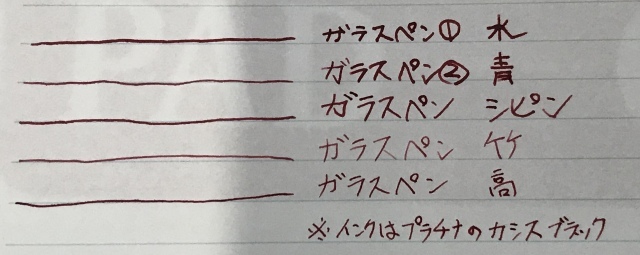 ガラスペン① 水
ガラスペン② 青
ガラスペン シピン
ガラスペン 竹
ガラスペン 高
※インクはプラチナのカシスブラック